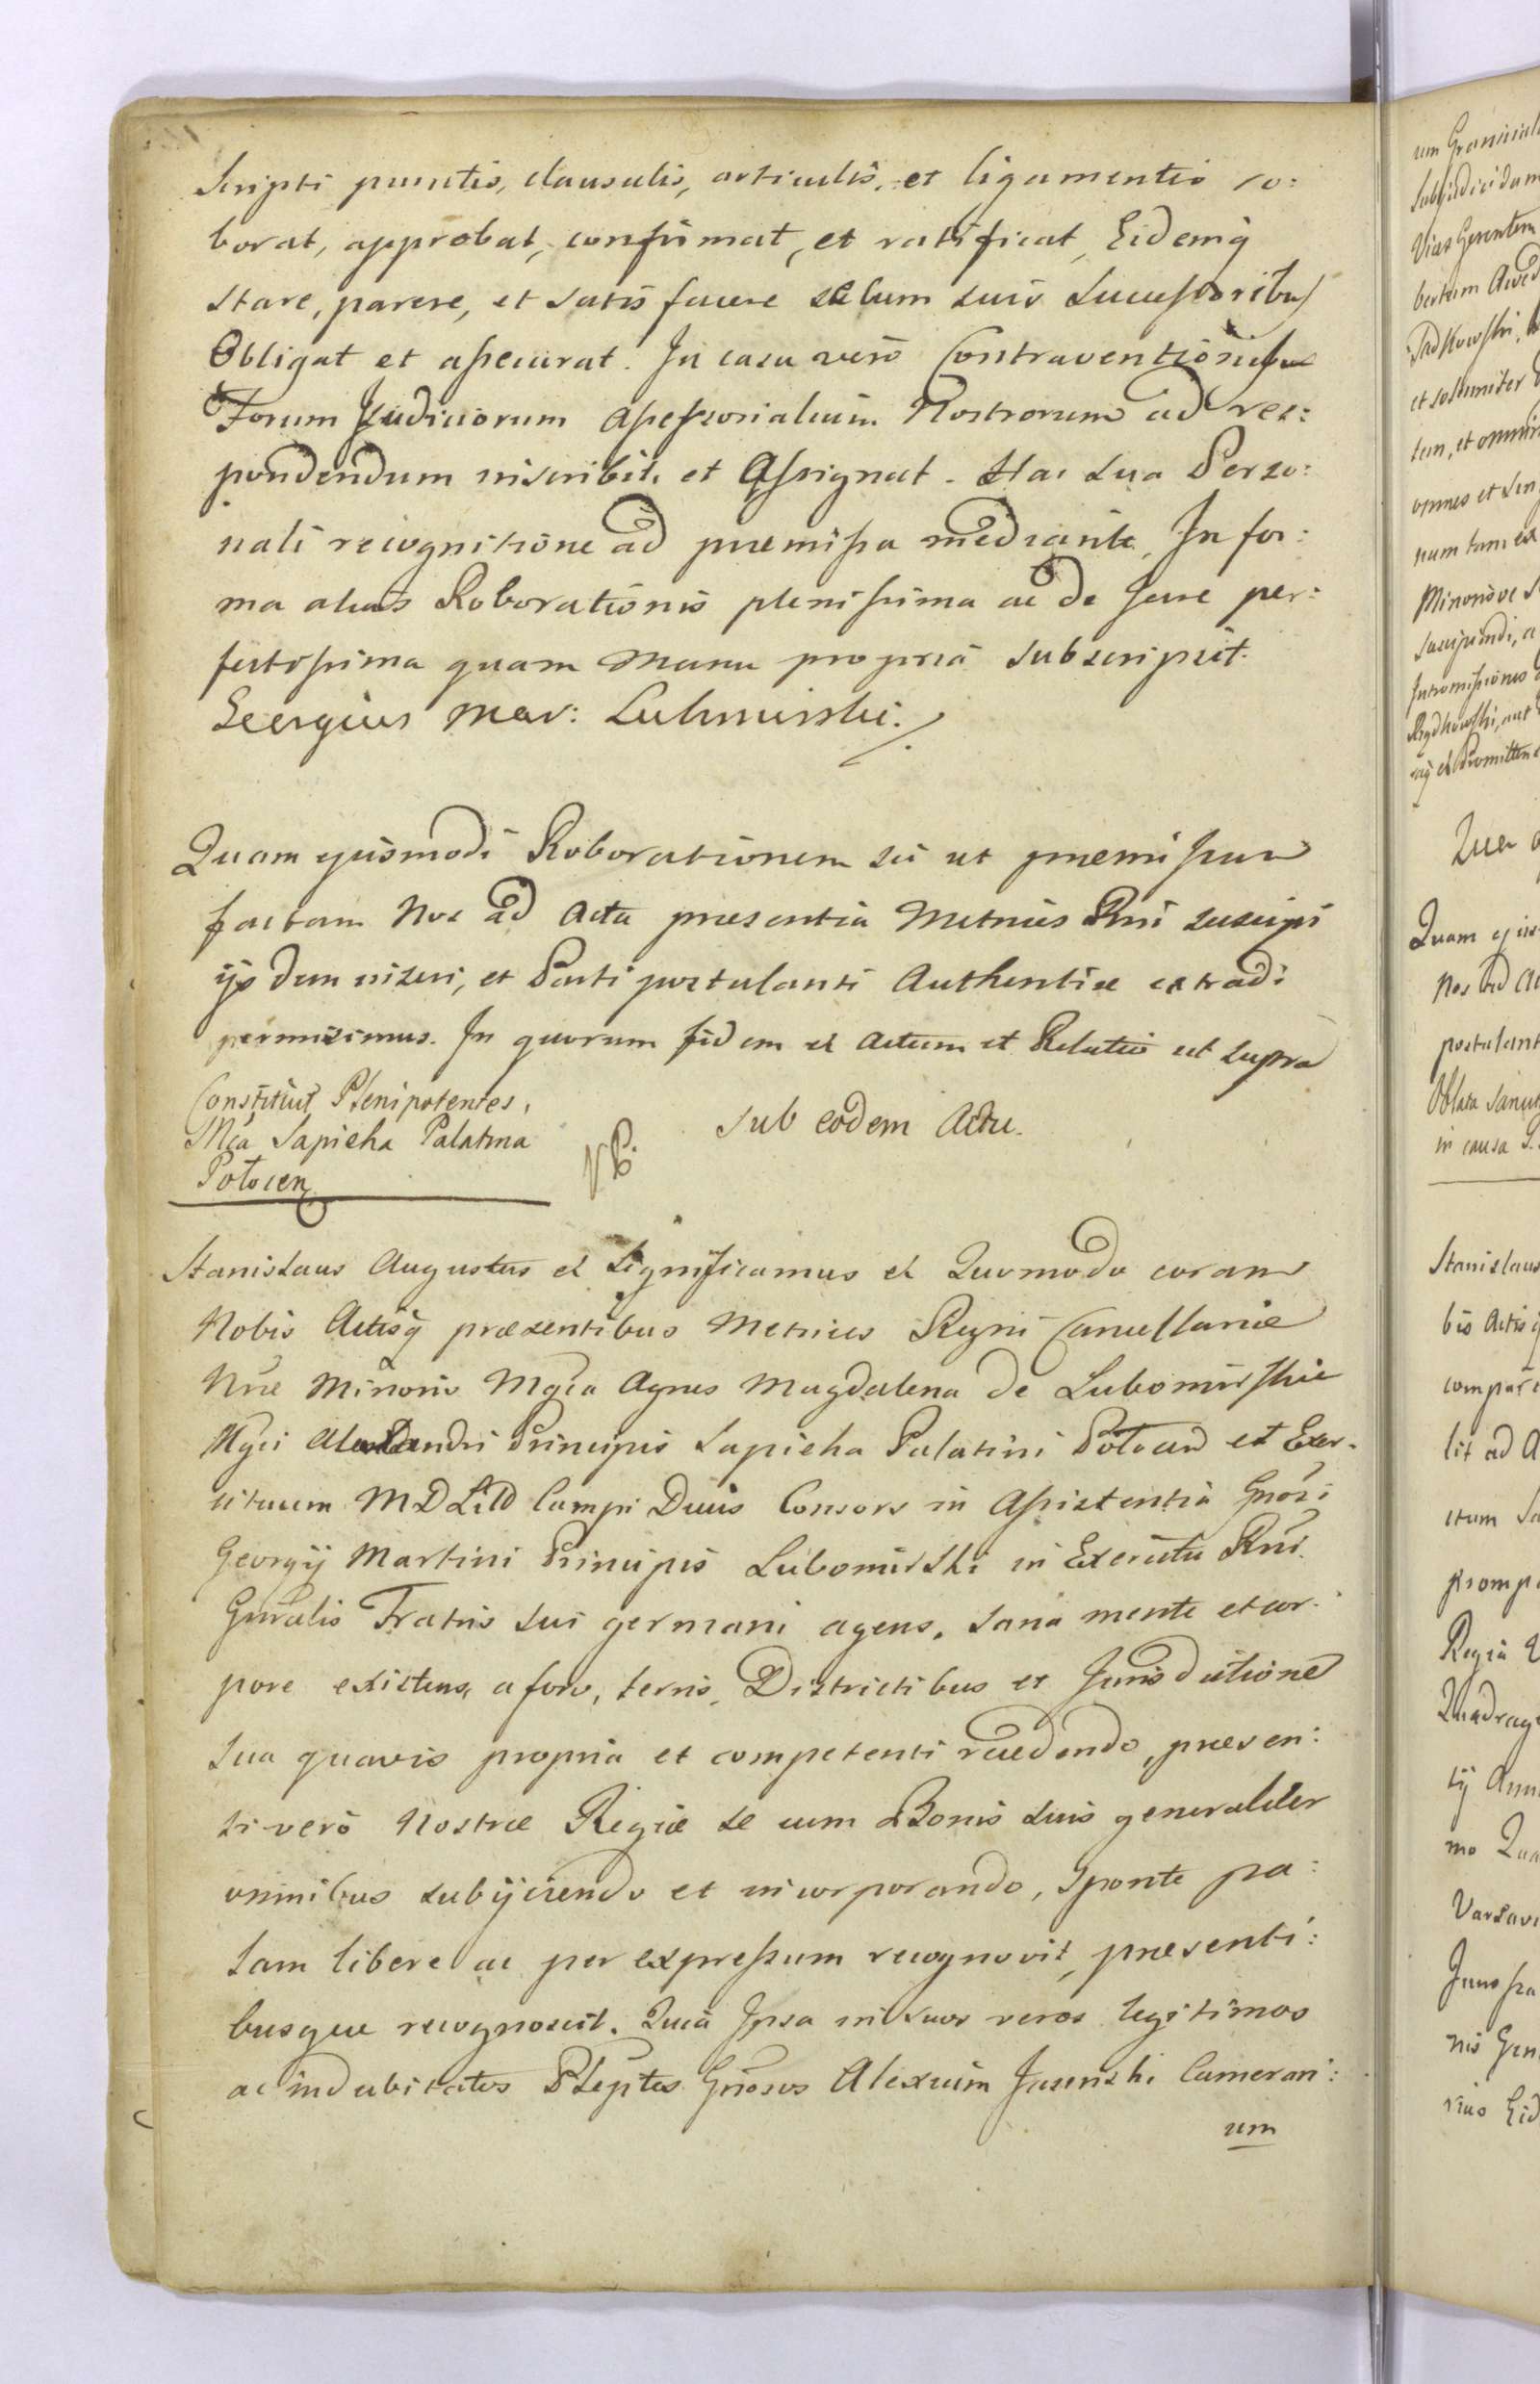 Scripti punctis, clausulis, articulis, et ligamentis ro:
borat, approbat, confirmat, et ratificat, Eidemq
stare, parere, et satis facere se cum suis Successoribus
Obligat et assecurat. In casu vero Contraventionis
Forum Judiciorum Assessorialium Nostrorum ad res:
pondendum inscribit, et Assignat. Hac sua Perso:
nali recognitione ad præmissa mediante, In for:
ma alias Roborationis plenissima ac de Jure per:
fectissima quam manu propria subscripsit.
Georgius Mar:
Quam ejusmodi Roborationem sic ut præmissum
factam Nos ad Acta præsentia Metrices Rni suscipi
ijs dem inseri, et Parti postulanti Authentice extradi
permisimus. In quorum fidem et Actum et Relatio ut supra
Constituit Plenipotentes,
Mca Sapieha Palatina
Polocen
NB.
Sub eodem Actu.
Stanislaus Augustus et Significamus et Quomodo coram
Nobis Actisq præsentibus Metrices Regni Cancellariæ
Nræ Minoris Mgca Agnes Magdalena de Lubomirskie
Mgci Alexandri Principis Sapieha Palatini Polocen et Exer:
cituum M D Lit D Campi Ducis Consors in Assistentia Gnosi
Georgij Martini Principis Lubomirski in Exercitu Rni
Gnralis Fratris sui germani agens, sana mente et cor:
pore existens, a foro, terris, Districtibus et Jurisdictione
sua quavis propria et competenti recedendo, præsen:
ti vero Nostræ Regiæ se cum Bonis suis generaliter
omnibus subijciendo et incorporando, sponte pa:
lam libere ac per expressum recognovit, præsenti:
busque recognoscit. Quia Ipsa in suos veros legitimos
ac indubitatos Plēptes Gnosos Alexium Jasinski Camerari:
um
um Graniciale
Subjudicidam
Vices Gerentem
et solemniter
tem, et omnim
omnes et sin
num tam ex
Minorisve
suscipiendi, a
Intromissiones
Quam ejus
Nos ad Ac
postulant
Oblata
in causa S.
Stanislaus
bis Actisq
compare
lit ad A
itum
promp
Regia
Quadrag
tij Ann
mo Qua
Varsavi
Jurossa
nis Gen
rius Eid